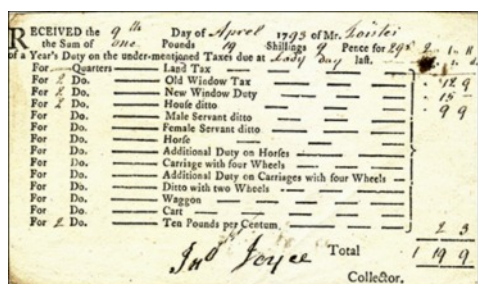 RECEIVED the 9th Day of April 1793 of Mr.
the Sum of one Pounds 19 Shillings 9 Pence for
of a Year's Duty on the under-mentioned Taxes due at Lady day last.
For Quarters Land Tax
For 2 Do. Old Window Tax 12 9
For 2 Do. New Window Duty 15
For 2 Do. House ditto 9 9
For Do. Male Servant ditto
For Do. Female Servant ditto
For Do. Horse
For Do. Additional Duty on Horses
For Do. Carriage with four Wheels
For Do. Additional Duty on Carriages with four Wheels
For Do. Ditto with two Wheels
For Do. Waggon
For Do. Cart
For 2 Do. Ten Pounds per Centum, 2 3
Jno Joyce Total 1 19 9
Collector.